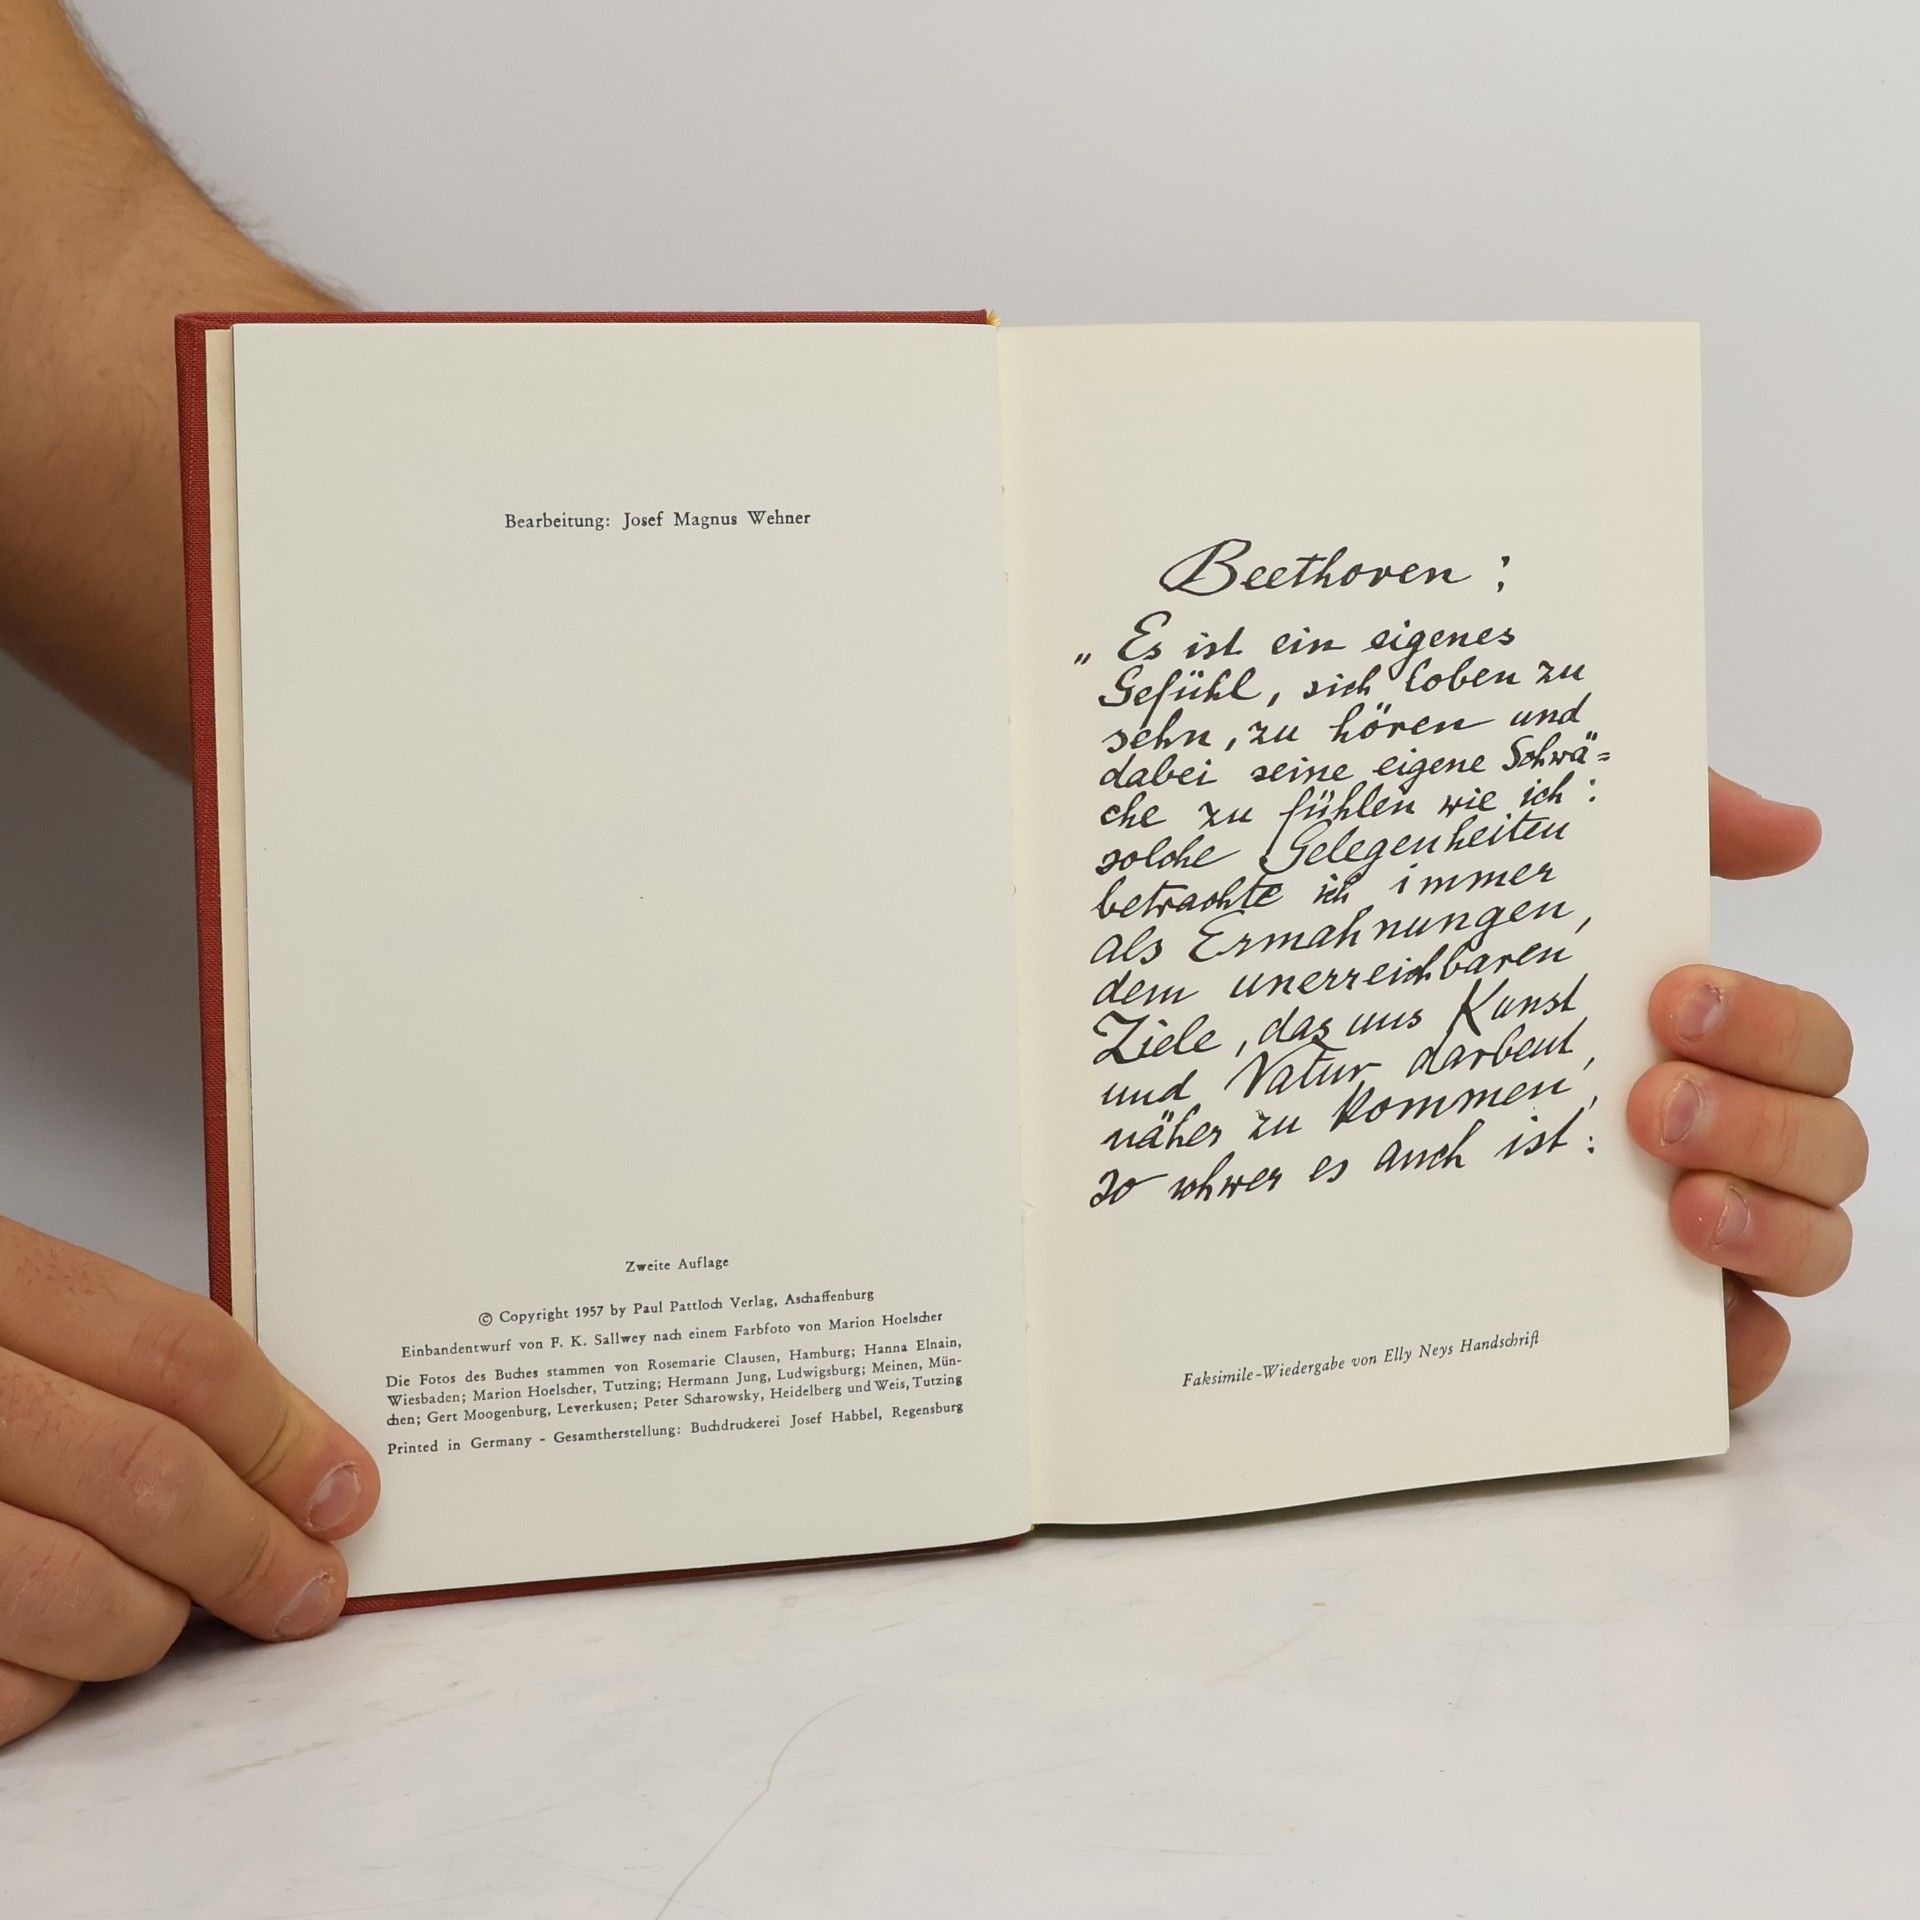 Bearbeitung: Josef Magnus Wehner
Zweite Auflage
© Copyright 1957 by Paul Pattloch Verlag, Aschaffenburg
Einbandentwurf von F. K. Sallwey nach einem Farbfoto von Marion Hoelscher
Die Fotos des Buches stammen von Rosemarie Clausen, Hamburg; Hanna Elnain,
Wiesbaden; Marion Hoelscher, Tutzing; Hermann Jung, Ludwigsburg; Meinen, Mün-
chen; Gert Moogenburg, Leverkusen; Peter Scharowsky, Heidelberg und Weis, Tutzing
Printed in Germany - Gesamtherstellung: Buchdruckerei Josef Habbel, Regensburg
Beethoven:
„Es ist ein eigenes
Gefühl, sich loben zu
sehn, zu hören und
dabei seine eigene Schwä=
che zu fühlen wie ich:
solche Gelegenheiten
betrachte ich immer
als Ermahnungen,
dem unerreichbaren
Ziele, das uns Kunst
und Natur darbeut,
näher zu kommen,
so schwer es auch ist:
Faksimile-Wiedergabe von Elly Neys Handschrift